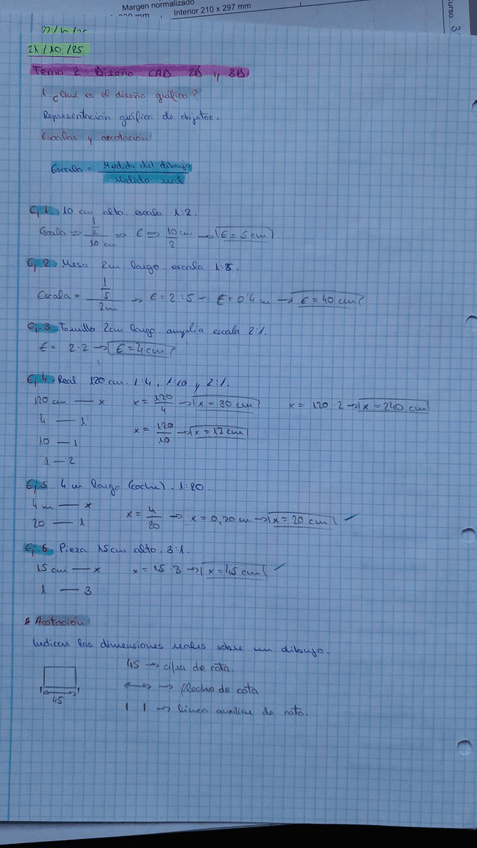 Margen normalizado
Interior 210 x 297 mm
21/10/25
Tema 2. Diseño CAD 2D y 3D.
1. ¿Qué es el diseño gráfico?
Representación gráfica de objetos.
Escalas y acotación
Escala = Medida del dibujo
Ej. 1 10 cm alto. escala 1:2.
Escala => 1/2 / 10 cm => E => 10 cm / 2 -> E = 5 cm
Ej. 2 Mesa 2m largo. escala 1:5.
Escala = 1/5 / 2m -> E = 2:5 - E = 0'4 m -> E = 40 cm
Ej. 3 Tornillo 2cm largo. amplia escala 2:1.
E = 2·2 -> E = 4cm
Ej. 4 Real 120 cm. 1:4, 1:10 y 2:1.
120 cm — x x = 120/4 -> x = 30 cm x = 120·2 -> x = 240 cm
4 — 1 x = 120/10 -> x = 12 cm
10 — 1
1 — 2
Ej. 5. 4 m largo (coche). 1:20.
4 m — x
20 — 1 x = 4/20 -> x = 0,20 m -> x = 20 cm ✓
Ej. 6. Pieza 15cm alto. 3:1.
15 cm — x x = 15·3 -> x = 45 cm ✓
1 — 3
Acotación
Indican las dimensiones reales sobre un dibujo.
45 -> cifra de cota.
<-> -> flecha de cota
45
| | -> línea auxiliar de cota.